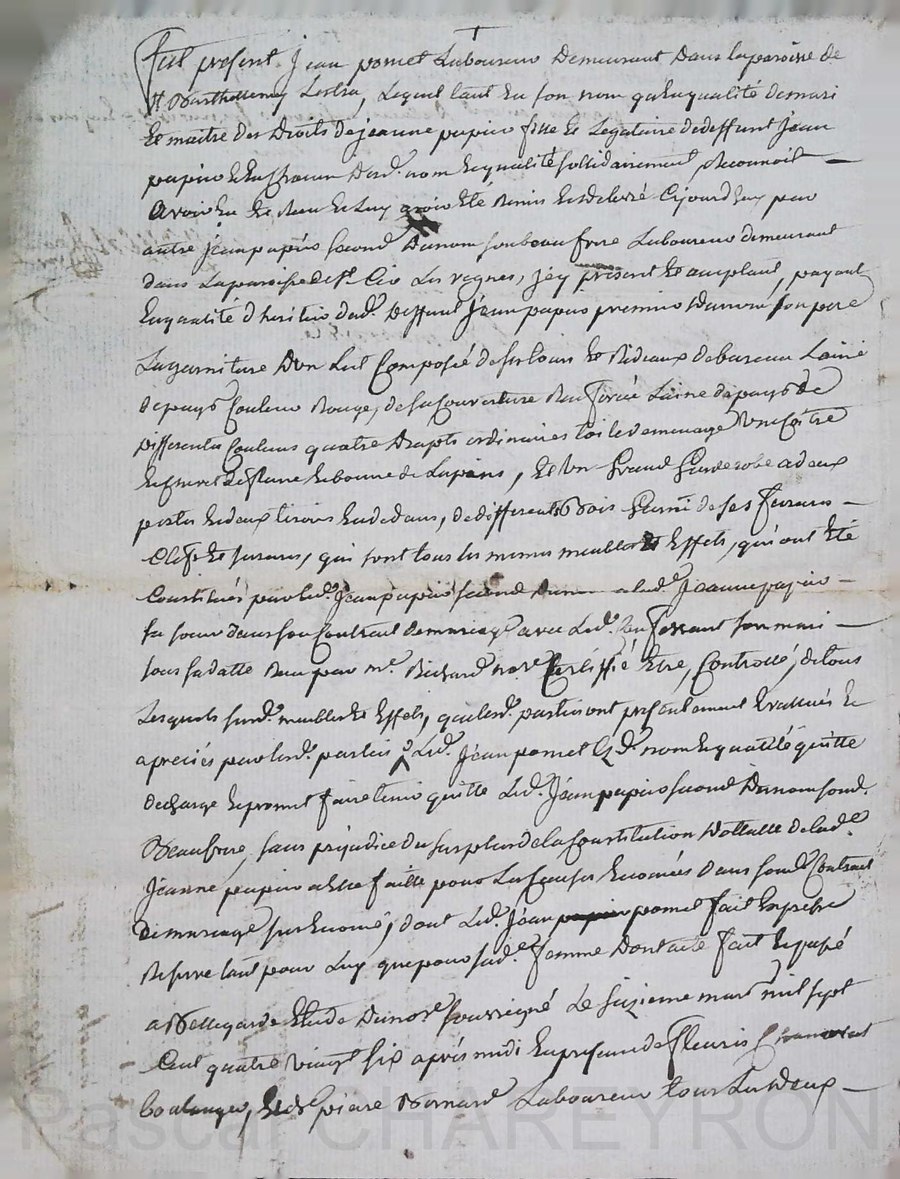 fut présent Jean pomet Laboureur Demeurant Dans laparoisse de
st Barthellemy Lestra, Lequel tant En son nom qu'Enqualité demari
Et maitre des Droits dejeanne papier fille Et Legataire dedeffunt Jean
papier Et En Chacun Desd. nom Enqualité sollidairement Reconnoit
avoir Eu Et Receu Et Luy avoir Eté Remis Et delivré Cejourd'huy par
autre jean papier second Dunom sonbeau frere Laboureur demeurant
dans Laparoisse de st Cir Les vignes, jcy présent Et acceptant, payant
Enqualité d'heritier dud. Deffunt Jean papier premier Dunom son pere
Lagarniture D'un Lit Composée de ses tours Et Rideaux de Laine
depays Couleur Rouge, de sa Couverture Laine depays de
Differentes Couleurs quatre Draps ordinaires toile demenage Un Coffre
, Et Un Grand Garderobe adeux
portes Et deux tiroirs Endedans, de differents Bois Garni de ses ferrures
Clefs Et serrures, qui sont tous les memes meubles Et Effets, qui ont Eté
Constitués par led. Jean papier second Dunom alad. Jeanne papier
sa soeur dans son Contrat demariage avec Led. son mari
sous sa datte Receu par me. Richard nore. Certiffié Etre, Controllé; de tous
Lesquels susd. meubles Et Effets, que lesd. parties ont présentement Evalués Et
apreciés par lesd. parties Led. Jean pomet Esd. nom Et qualité quitte
decharge Et promet faire tenir quitte Led. Jean papier second Dunom sond.
Beaufrere, sans prejudice du surplus de la Constitution Dottalle de lad.
Jeanne papier a Elle faitte pour Les Causes Enoncées Dans sond. Contrat
de mariage sus Enoncé, dont Led. Jean pomet fait Expresse
Reserve tant pour Luy que pour sad. femme Dont acte fait Et passé
a Bellegarde Etude Dunore. soussigné Le seizieme mars mil sept
Cent quatre vingt six après midi En presence de fleuris
boulanger, Et de piere Bernard Laboureur tous Les Deux
Pascal CHAREYRON